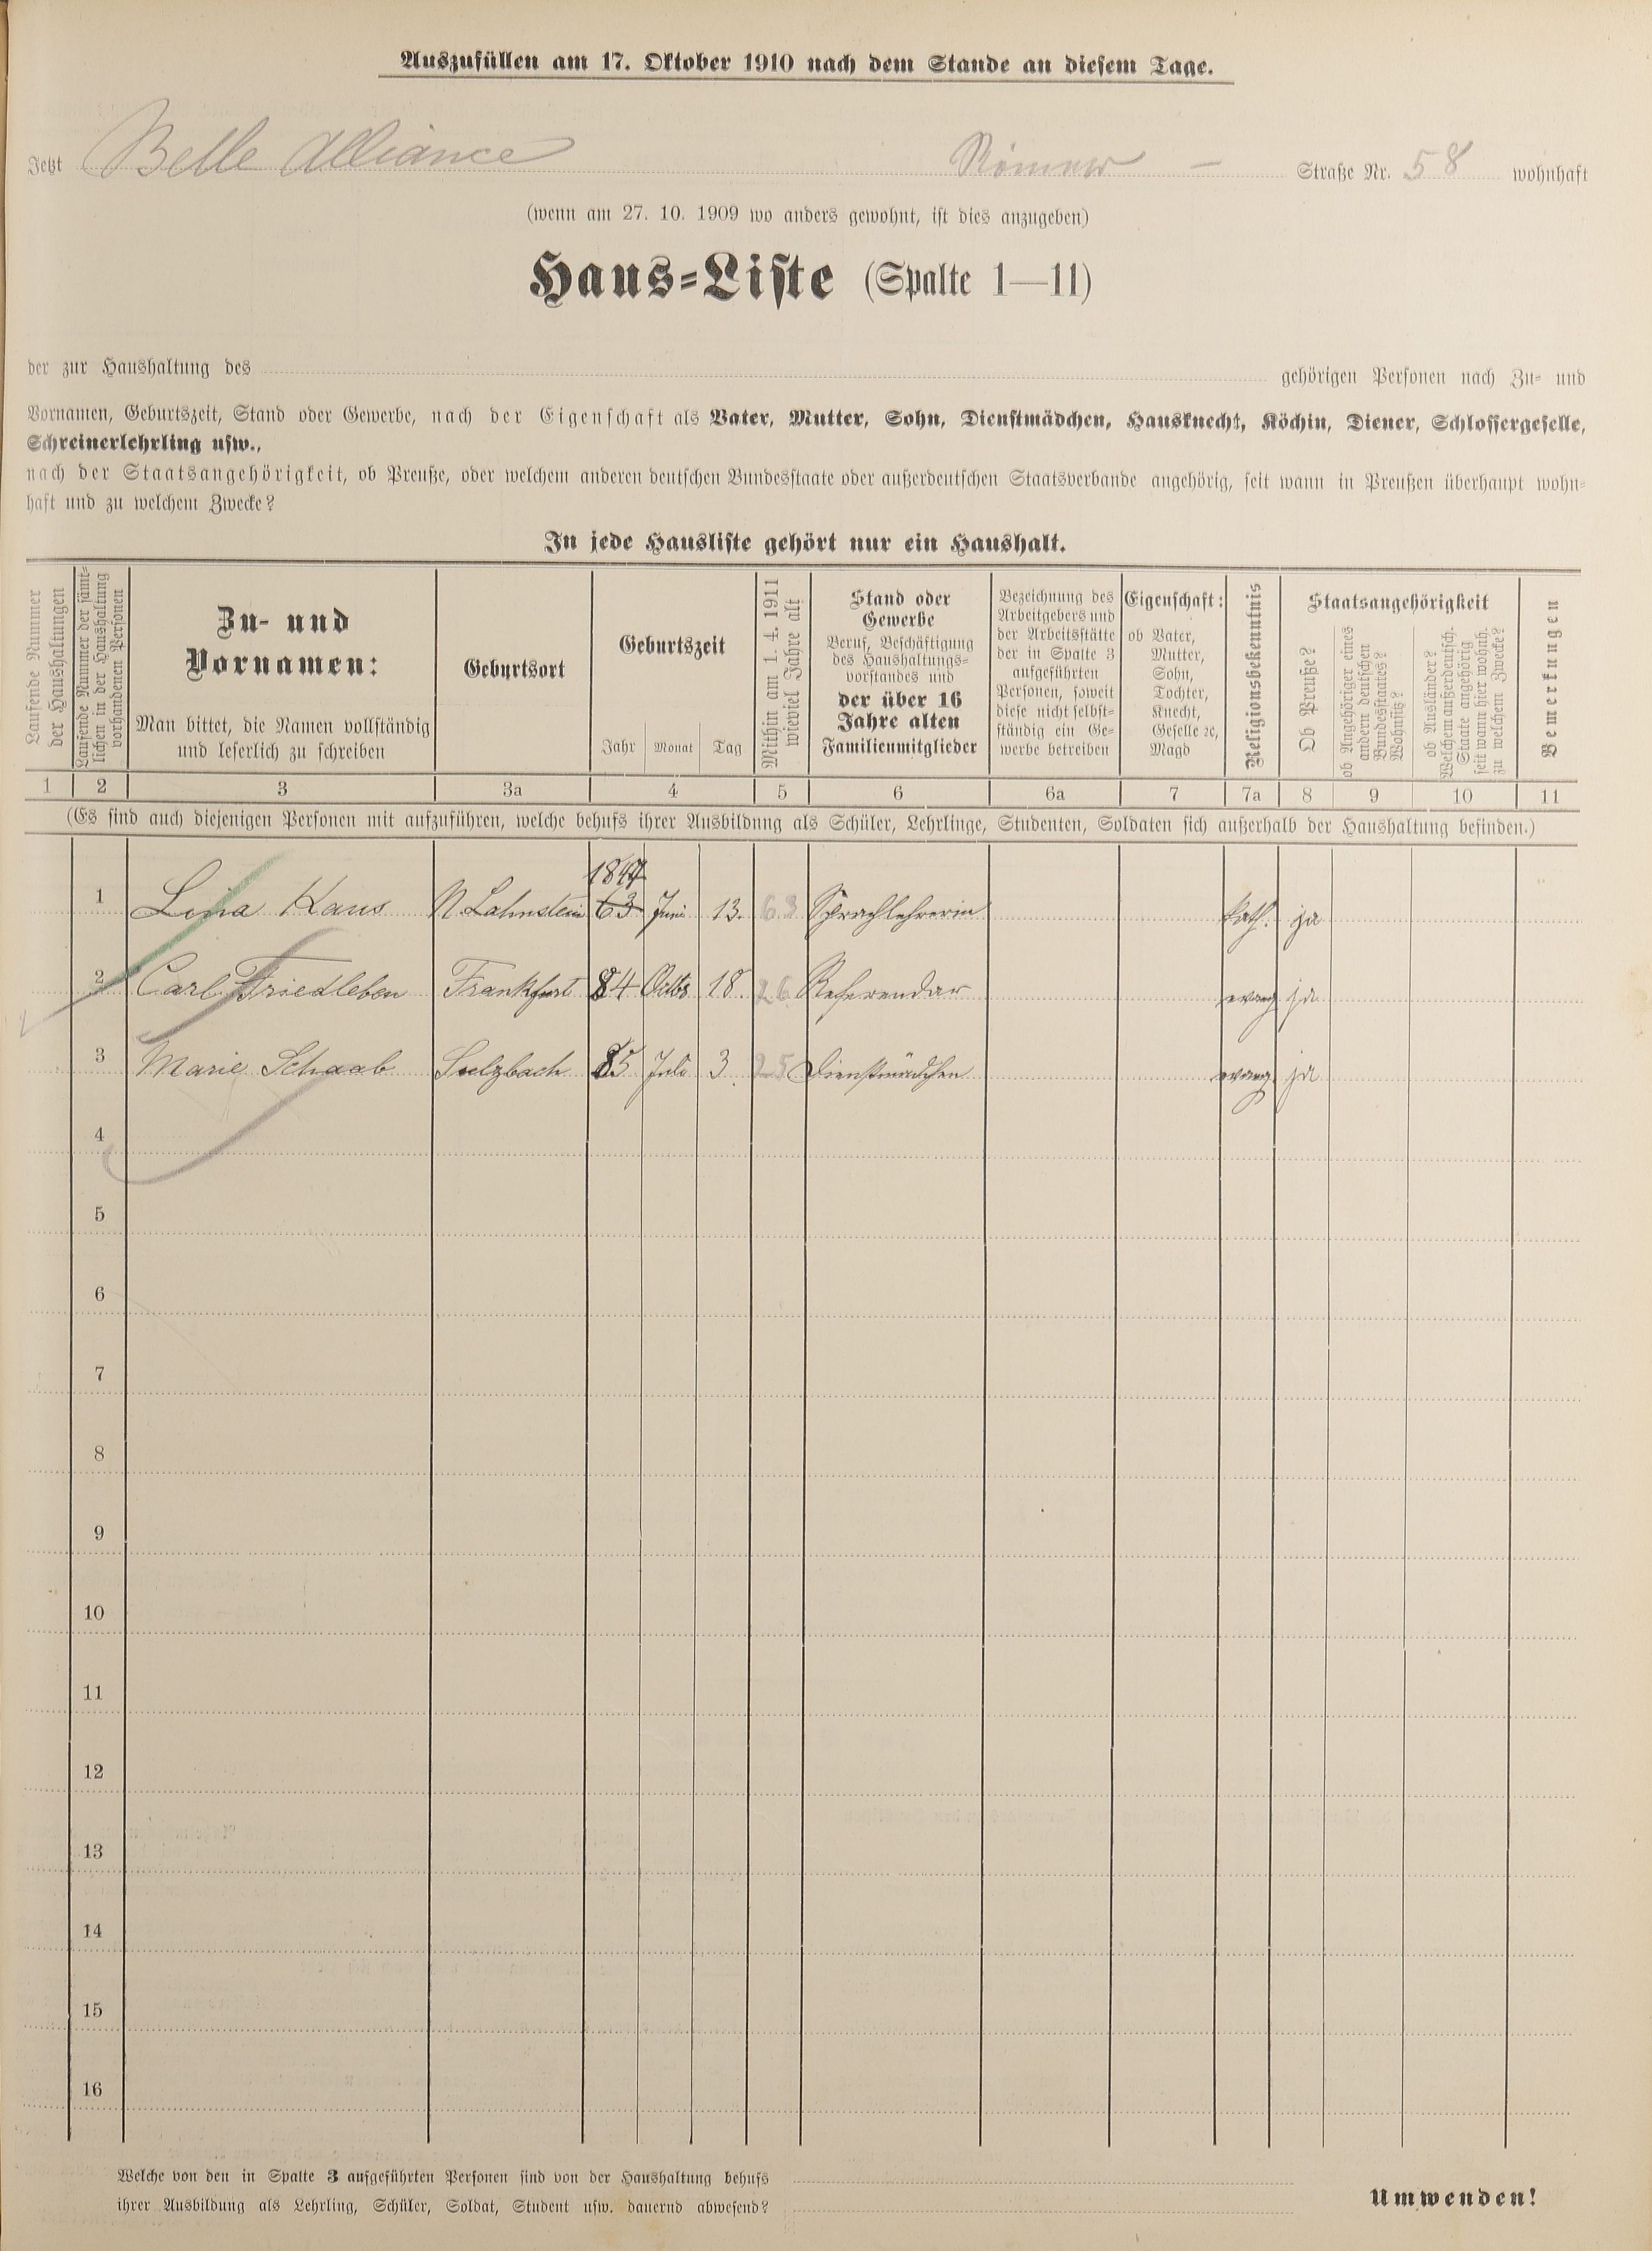 Auszufüllen am 17. Oktober 1910 nach dem Stande an diesem Tage.
Jetzt Belle Alliance Römer - Straße Nr. 58 wohnhaft
(wenn am 27. 10. 1909 wo anders gewohnt, ist dies anzugeben)
Haus-Liste (Spalte 1—11)
der zur Haushaltung des gehörigen Personen nach Zu- und
Vornamen, Geburtszeit, Stand oder Gewerbe, nach der Eigenschaft als Vater, Mutter, Sohn, Dienstmädchen, Hausknecht, Köchin, Diener, Schlossergeselle,
Schreinerlehrling usw.,
nach der Staatsangehörigkeit, ob Preuße, oder welchem anderen deutschen Bundesstaate oder außerdeutschen Staatsverbande angehörig, seit wann in Preußen überhaupt wohn-
haft und zu welchem Zwecke?
In jede Hausliste gehört nur ein Haushalt.
Laufende Nummer
der Haushaltungen
Laufende Nummer der sämt-
lichen in der Haushaltung
vorhandenen Personen
Zu- und
Vornamen:
Man bittet, die Namen vollständig
und leserlich zu schreiben
Geburtsort
Geburtszeit
Jahr Monat Tag
Mithin am 1. 4. 1911
wieviel Jahre alt
Stand oder
Gewerbe
Beruf, Beschäftigung
des Haushaltungs-
vorstandes und
der über 16
Jahre alten
Familienmitglieder
Bezeichnung des
Arbeitgebers und
der Arbeitsstätte
der in Spalte 3
aufgeführten
Personen, soweit
diese nicht selbst-
ständig ein Ge-
werbe betreiben
Eigenschaft:
ob Vater,
Mutter,
Sohn,
Tochter,
Knecht,
Geselle ꝛc,
Magd
Religionsbekenntnis
Staatsangehörigkeit
Ob Preuße?
ob Angehöriger eines
andern deutschen
Bundesstaates?
Wohnsitz?
ob Ausländer?
Welchem außerdeutsch.
Staate angehörig
seit wann hier wohnh.
zu welchem Zwecke?
Bemerkungen
1 2 3 3a 4 5 6 6a 7 7a 8 9 10 11
(Es sind auch diejenigen Personen mit aufzuführen, welche behufs ihrer Ausbildung als Schüler, Lehrlinge, Studenten, Soldaten sich außerhalb der Haushaltung befinden.)
1847
1 Lina Kaus N. Lahnstein 63 Juni 13. 63 Sprachlehrerin kath. ja
2 Carl Friedleben Frankfurt 84 Octbr 18. 26 Referendar evang ja
3 Marie Schaab Sulzbach 85 Juli 3 25 Dienstmädchen evang. ja
4
5
6
7
8
9
10
11
12
13
14
15
16
Welche von den in Spalte 3 aufgeführten Personen sind von der Haushaltung behufs
ihrer Ausbildung als Lehrling, Schüler, Soldat, Student usw. dauernd abwesend?
Umwenden!